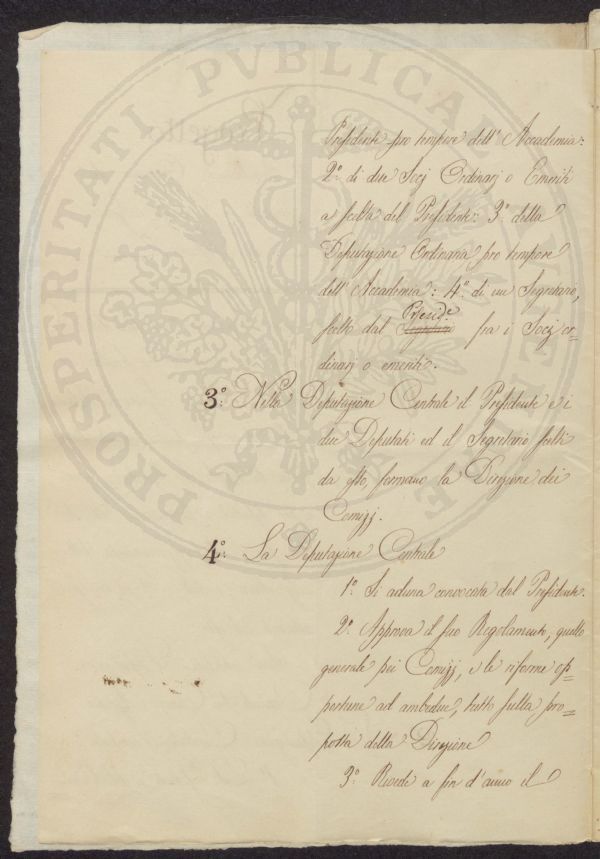 PROSPERITATI PVBLICAE AVGENDAE
Presidente pro tempore dell'Accademia:
2.° di due Socj Ordinarj o Emeriti
a scelta del Presidente: 3.° della
Deputazione Ordinaria pro tempore
dell'Accademia: 4.° di un Segretario,
Preside
scelto dal Segretario fra i Socj or=
dinarj o emeriti.
3.° Nella Deputazione Centrale il Presidente e i
due Deputati ed il Segretario scelti
da esso, formano la Direzione dei
Comizj.
4.° La Deputazione Centrale
1.° Si aduna convocata dal Presidente.
2.° Approva il suo Regolamento, quello
generale pei Comizj, e le riforme op=
portune ad ambidue, tutto sulla pro=
posta della Direzione
3.° Rivede a fin d'anno il